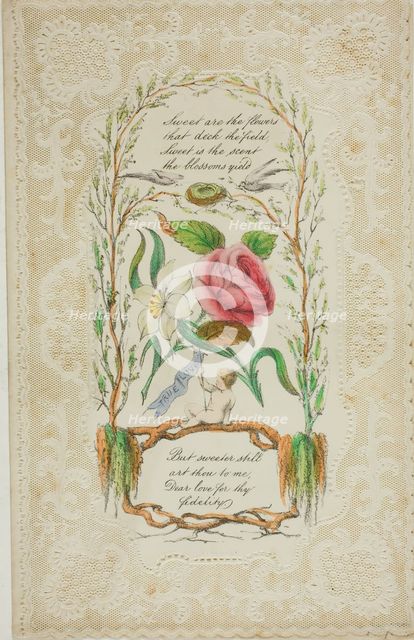 Sweet are the flowers
that deck the field,
Sweet is the scent
the blossoms yield
Heritage Heritage
Heritage Heritage Heritage
Heritage Heritage
TRUE
Heritage Heritage Heritage
But sweeter still
art thou to me,
Dear love for thy
fidelity